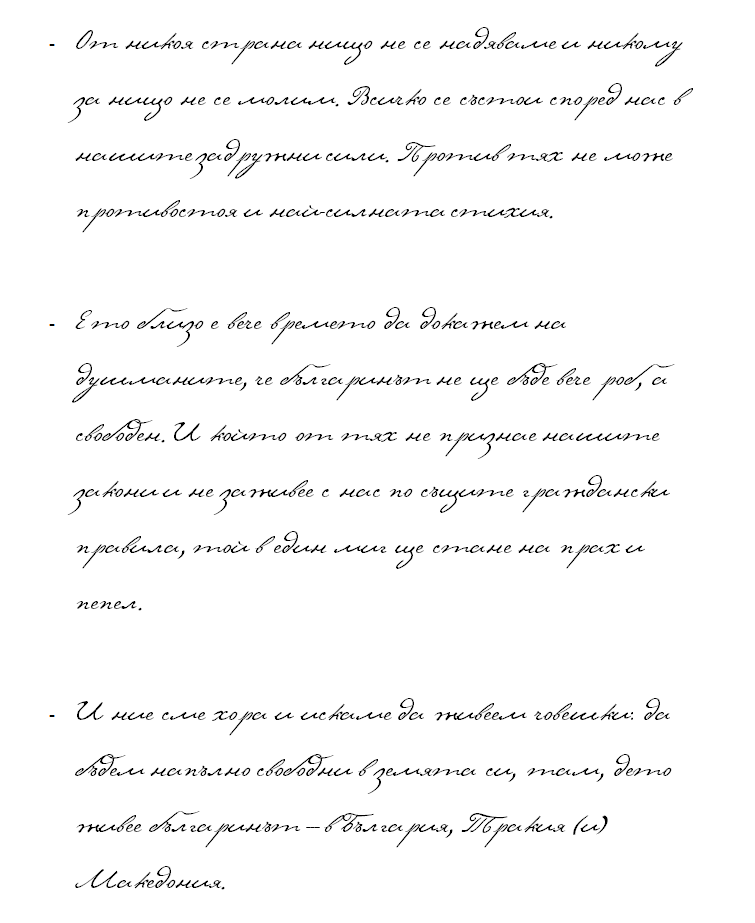 - От никоя страна нищо не се надяваме и никому
за нищо не се молим. Всичко се състои според нас в
нашите задружни сили. Против тях не може
противостоя и най-силната стихия.
- Ето близо е вече времето да докажем на
душманите, че българинът не ще бъде вече роб, а
свободен. И който от тях не признае нашите
закони и не заживее с нас по същите граждански
правила, той в един миг ще стане на прах и
пепел.
- И ние сме хора и искаме да живеем човешки: да
бъдем напълно свободни в земята си, там, дето
живее българинът – в България, Тракия (и)
Македония.